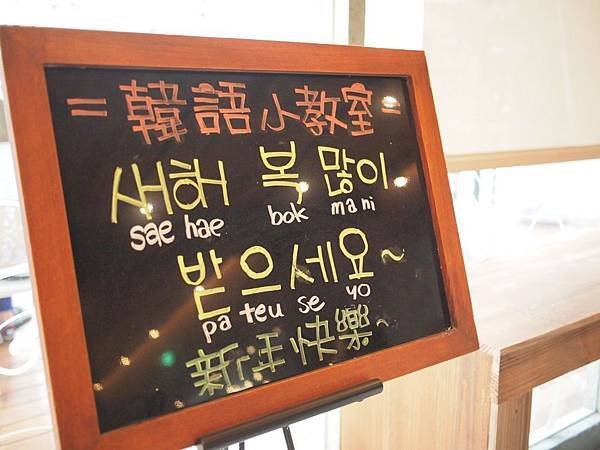 =韓語小教室=
새해 복 많이
sae hae bok ma ni
받으세요~
pa teu se yo
新年快樂~